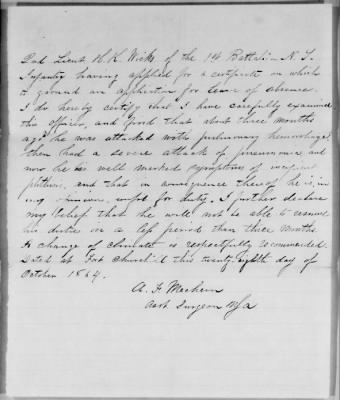 2nd Lieut H. K. Wicks of the 1st Battalion N. T.
Infantry having applied for a certificate on which
to ground an application for leave of absence.
I do hereby certify that I have carefully examined
this officer, and find that about three months
ago he was attacked with pulmonary hemorrhage,
then had a severe attack of pneumonia, and
now he has well marked symptoms of incipient
phthisis, and that in consequence thereof he is, in
my opinion, unfit for duty. I further declare
my belief that he will not be able to resume
his duties in a less period than three months.
A change of climate is respectfully recommended.
Dated at Fort Churchill this twenty eighth day of
October 1864.
A. F. Mechem
Asst Surgeon USA